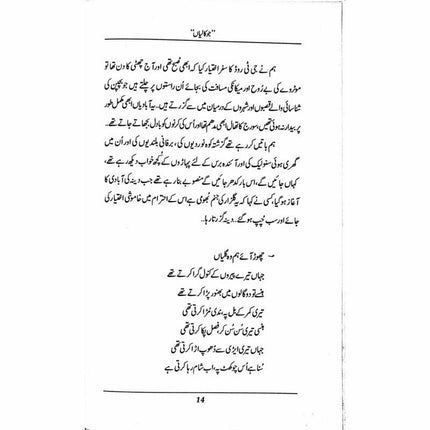 "جوکالیاں"
ہم نے جی ٹی روڈ کا سفر اختیار کیا کہ ابھی صبح تھی اور آج چھٹی کا دن تھا تو
موٹروے کی بے روح اور میکانکی مسافت کی بجائے اُن راستوں پر چلتے ہیں جو بچپن کی
شناسائی والے قصبوں اور شہروں کے درمیان میں سے گزرتے ہیں.. یہ آبادیاں ابھی مکمل طور
پر بیدار نہ ہوئی تھیں، سورج کا تھال ابھی مدھم تھا اور اُس کی کرنوں کو بادل بجھاتے جاتے تھے..
ہم باتیں کر رہے تھے گزشتہ کوہ نوردیوں کی، برفانی بلندیوں کی اور اُن میں
گھری ہوئی سنولیک کی اور آئندہ برس کے لئے پہاڑوں کے کُچھ خواب دیکھ رہے تھے،
کہاں جائیں گے، اس بار کدھر جائیں گے منصوبے بنا رہے تھے جب دینہ کی آبادی کا
آغاز ہو گیا، کسی نے کہا کہ یہ گلزار کی جنم بھومی ہے اس کے احترام میں خاموشی اختیار کی
جائے اور سب چُپ ہو گئے.. دینہ گزرتا رہا..
چھوڑ آئے ہم وہ گلیاں
جہاں تیرے پیروں کے کنول گرا کرتے تھے
ہنسے تو دو گالوں میں بھنور پڑا کرتے تھے
تیری کمر کے بل پہ ندی مُڑا کرتی تھی
ہنسی تیری سُن سُن کر فصل پکا کرتی تھی
جہاں تیری ایڑی سے دُھوپ اڑا کرتی تھی
سُنا ہے اُس چوکھٹ پہ، اب شام رہا کرتی ہے
14